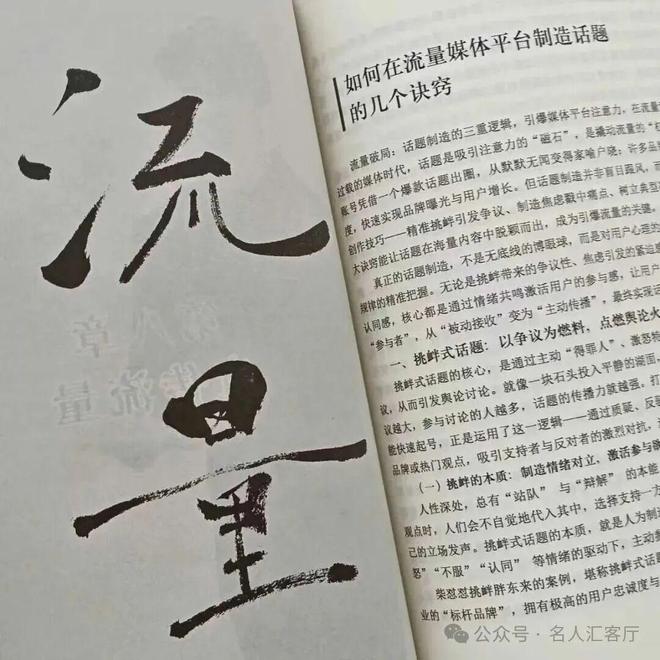 流量
如何在流量媒体平台制造话题
的几个诀窍
流量破局：话题制造的三重逻辑，引爆媒体平台注意力，在流量
过载的媒体时代，话题是吸引注意力的“磁石”，是撬动流量的“杠
账号凭借一个爆款话题出圈，从默默无闻变得家喻户晓；许多品
度，快速实现品牌曝光与用户增长。但话题制造并非盲目跟风，而
创作技巧——精准挑衅引发争议、制造焦虑戳中痛点、树立典型
大诀窍能让话题在海量内容中脱颖而出，成为引爆流量的关键。
真正的话题制造，不是无底线的博眼球，而是对用户心理的
规律的精准把握。无论是挑衅带来的争议性、焦虑引发的紧迫
认同感，核心都是通过情绪共鸣激活用户的参与感，让用
“参与者”，从“被动接收”变为“主动传播”，最终实现
一、挑衅式话题：以争议为燃料，点燃舆论火
挑衅式话题的核心，是通过主动“得罪人”、激怒特
议，从而引发舆论讨论。就像一块石头投入平静的湖面，
议越大，参与讨论的人越多，话题的传播力就越强。打
能快速起号，正是运用了这一逻辑——通过质疑、反驳
品牌或热门观点，吸引支持者与反对者的激烈对抗，
（一）挑衅的本质：制造情绪对立，激活参与
人性深处，总有“站队”与“辩解”的本能
观点时，人们会不自觉地代入其中，选择支持一方
己的立场发声。挑衅式话题的本质，就是人为制造
怒”“不服”“认同”等情绪的驱动下，主动参
柴怼怼挑衅胖东来的案例，堪称挑衅式话
业的“标杆品牌”，拥有极高的用户忠诚度与
公众号·名人汇客厅